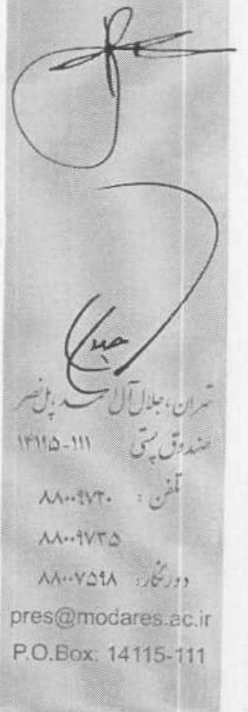 تهران، جلال آل احمد، پل نصر
صندوق پستی ۱۱۱-۱۴۱۱۵
تلفن: ۸۸۰۰۹۷۳۰
۸۸۰۰۹۷۳۵
دورنگار: ۸۸۰۰۷۵۹۸
pres@modares.ac.ir
P.O.Box: 14115-111